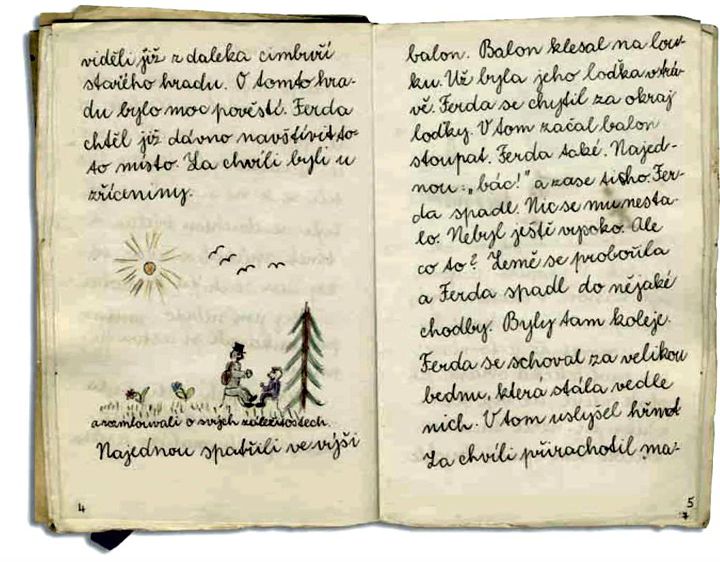 viděli již z daleka cimbuří
starého hradu. O tomto hra-
du bylo moc pověstí. Ferda
chtěl již dávno navštívit to-
to místo. Za chvíli byli u
zříceniny.
a rozmlouvali o svých záležitostech.
Najednou spatřili ve výši
4
balon. Balon klesal na lou-
ku. Už byla jeho loďka v trá-
vě. Ferda se chytil za okraj
loďky. V tom začal balon
stoupat. Ferda také. Najed-
nou: „bác!" a zase ticho. Fer-
da spadl. Nic se mu nesta-
lo. Nebyl ještě vysoko. Ale
co to? Země se probořila
a Ferda spadl do nějaké
chodby. Byly tam koleje.
Ferda se schoval za velikou
bednu, která stála vedle
nich. V tom uslyšel hřmot
Za chvíli přirachotil ma-
5